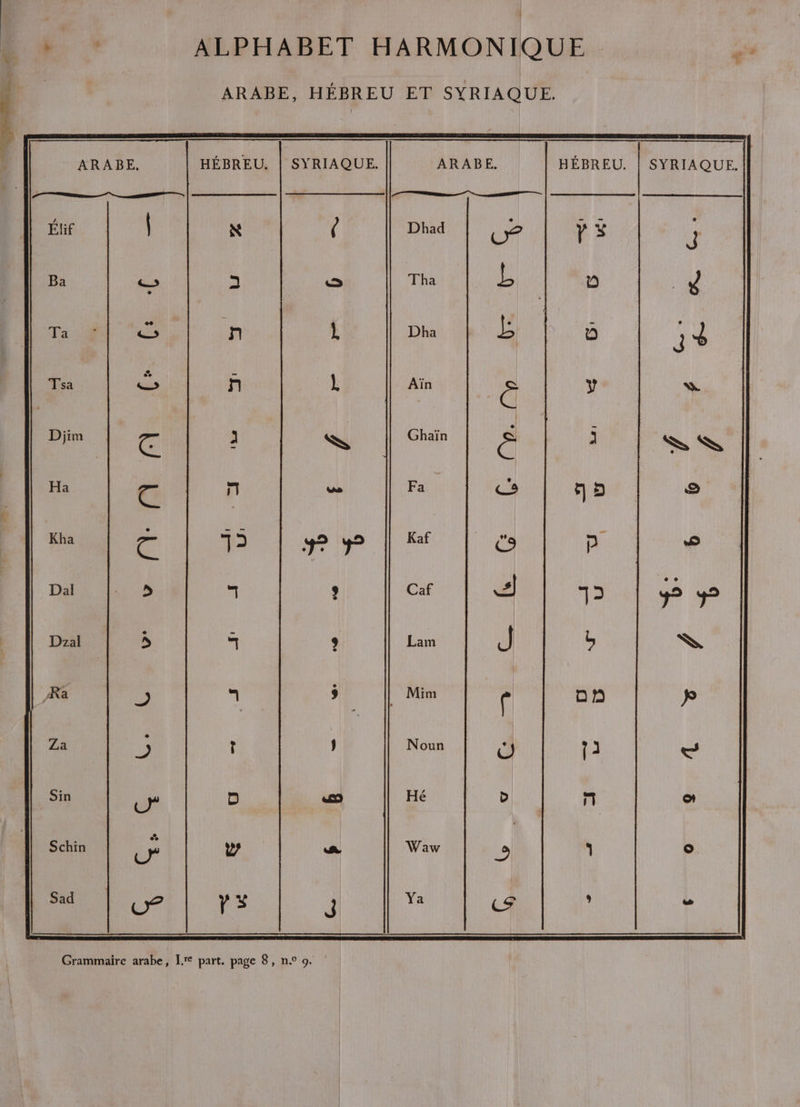 ALPHABET HARMONIQUE
ARABE, HÉBREU ET SYRIAQUE.
ARABE. HÉBREU. SYRIAQUE. ARABE. HÉBREU. SYRIAQUE.
Élif ا א ܐ Dhad ض צׄ ץׄ
Ba ب ב ܒ Tha ط ט ܛ
Ta ت ת ܬ Dha ظ טׄ
Tsa ث תׄ ܬ Aïn ع ע ܥ
Djim ج ג ܓ Ghaïn غ גׄ ܓ ܓ
Ha ح ח ܚ Fa ف פ ף ܦ
Kha خ כׄ ךׄ Kaf ق ק ܩ
Dal د ד ܕ Caf ك כ ך
Dzal ذ דׄ ܕ Lam ل ל ܠ
Ra ر ר ܪ Mim م מ ם ܡ
Za ز ז ܙ Noun ن נ ן ܢ
Sin س ס ܣ Hé ه ה ܗ
Schin ش ש ܫ Waw و ו ܘ
Sad ص צ ץ ܨ Ya ى י ܝ
Grammaire arabe, I.re part. page 8, n.º 9.